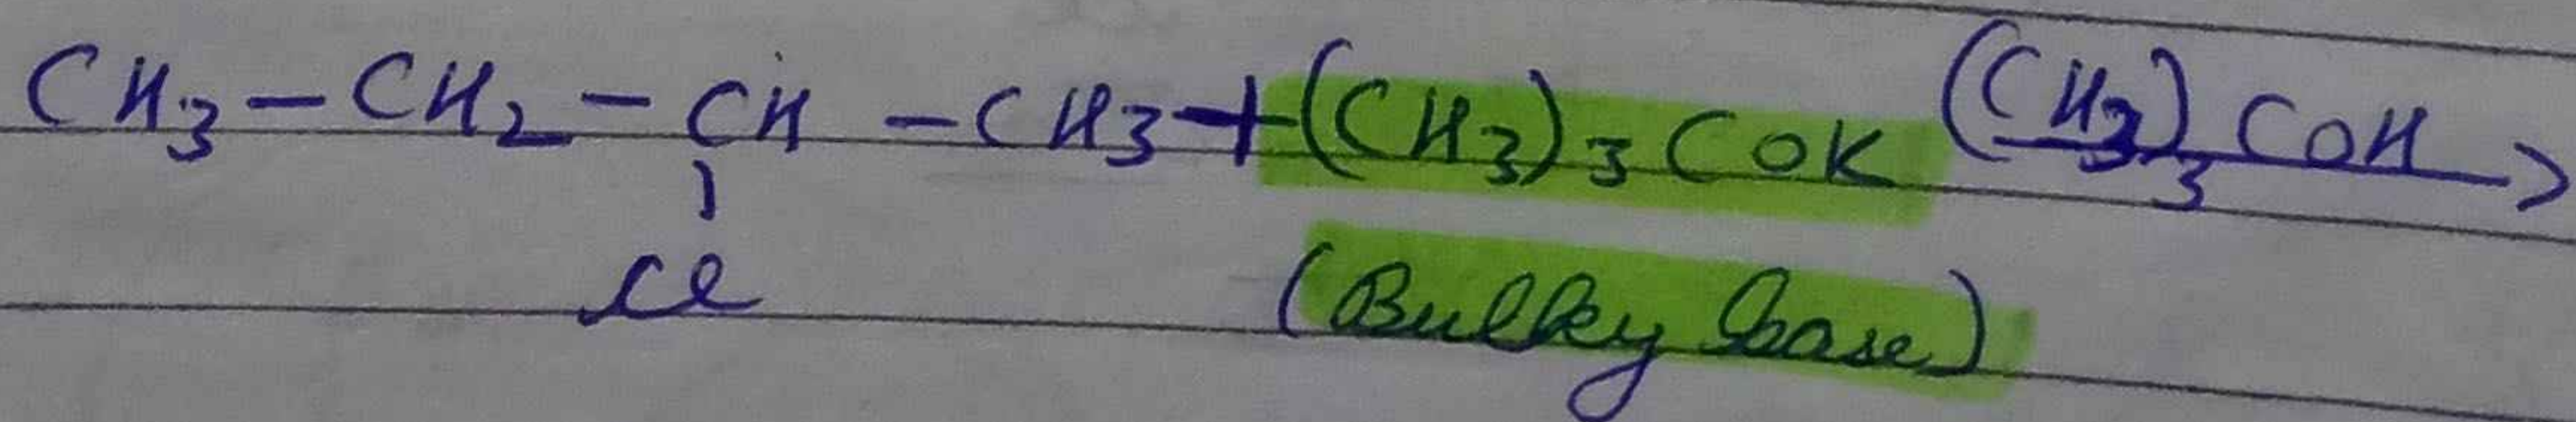 CH3 - CH2 - CH - CH3 + (CH3)3 COK (CH3)3 COH >
Cl
(Bulky base)